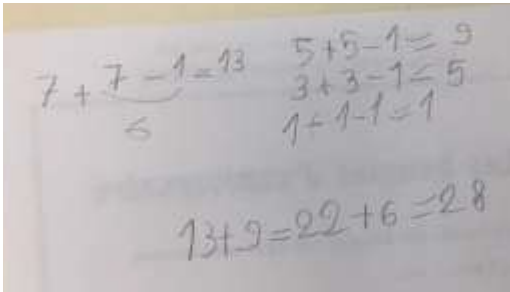 7 + 7 - 1 = 13
6
5 + 5 - 1 = 9
3 + 3 - 1 = 5
1 + 1 - 1 = 1
13 + 9 = 22 + 6 = 28